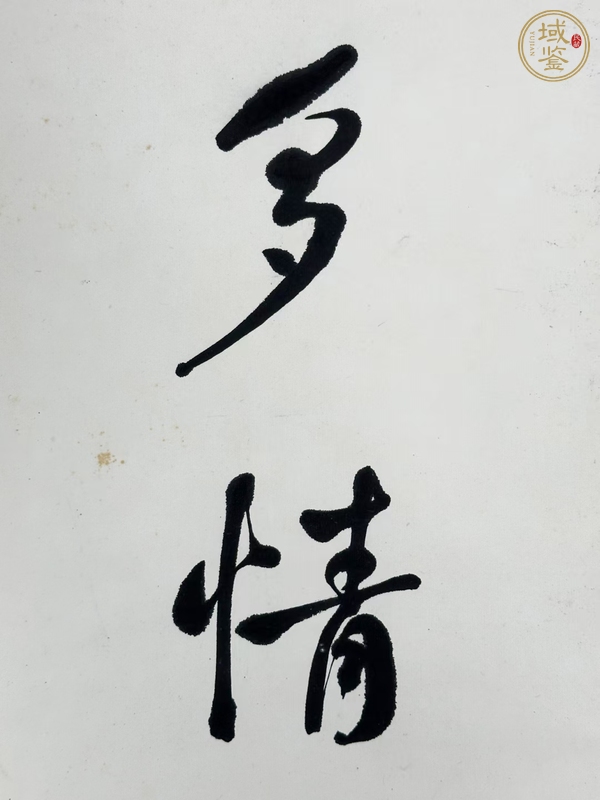 多情
域鉴
YUJIAN